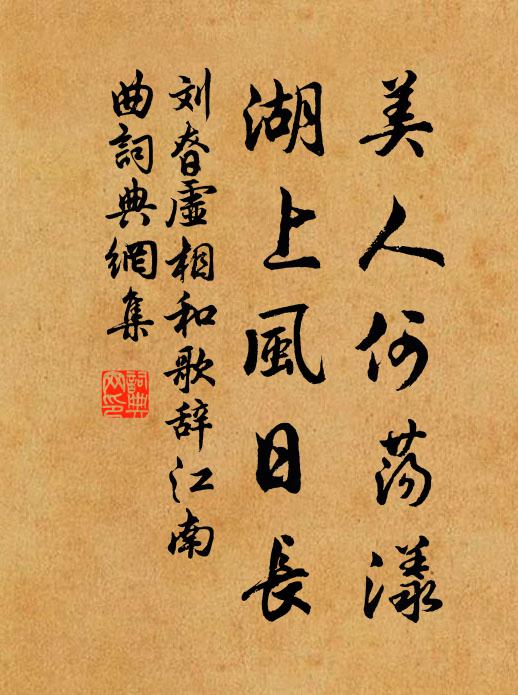 美人何荡漾
湖上風日長
刘昚虛相和歌辞江南
曲詞典網集
詞典
网印